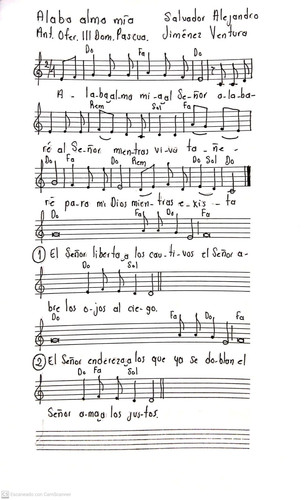 Alaba alma mía Salvador Alejandro
Ant. Ofer. III Dom. Pascua. Jiménez Ventura
Do Fa Do
A - laba al ma mi-a al Se-ñor a-la-ba-
Rem Sol Fa
ré al Se-ñor mien-tras vi-va ta-ñe-
Do Fa Do Rem Do Sol Do
ré pa-ra mi Dios mien-tras e-xis-ta
Do Fa Do Fa
① El Señor liberta a los cau-ti-vos el Señor a-
Do Sol
bre los o-jos al cie-go.
Do Fa Do Fa
② El Señor endereza a los que ya se do-blan el
Do Fa Sol
Señor a-ma a los jus-tos.
CS Escaneado con CamScanner